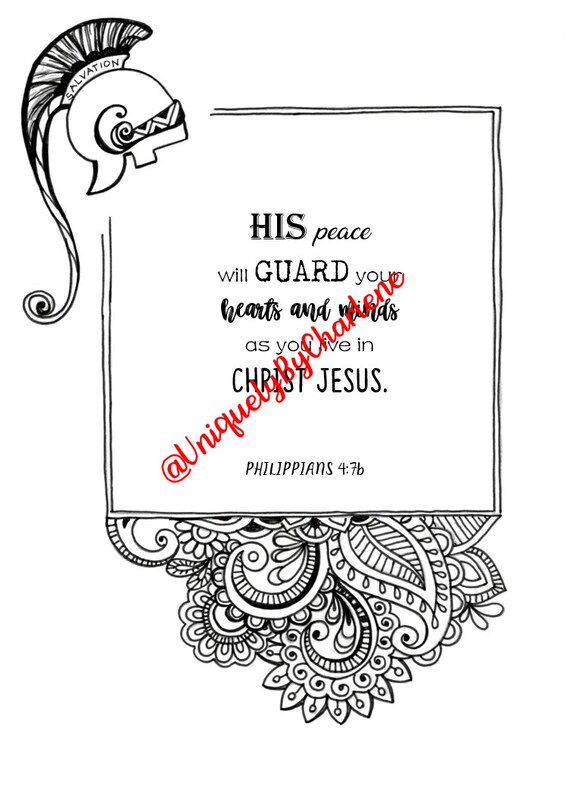 SALVATION
HIS peace
will GUARD your
hearts and minds
as you live in
CHRIST JESUS.
PHILIPPIANS 4:7b
@UniquelyByCharlene